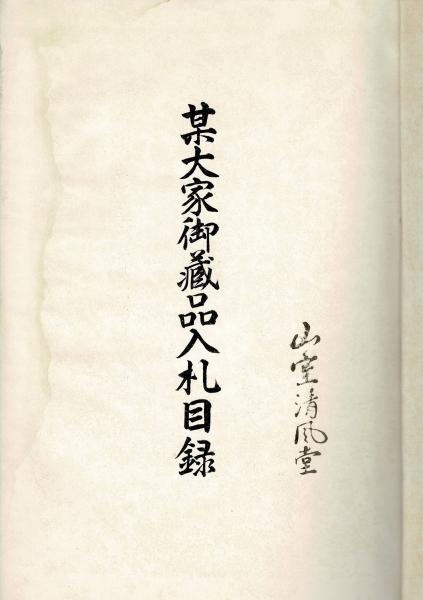 山室清風堂
某大家御藏品入札目録